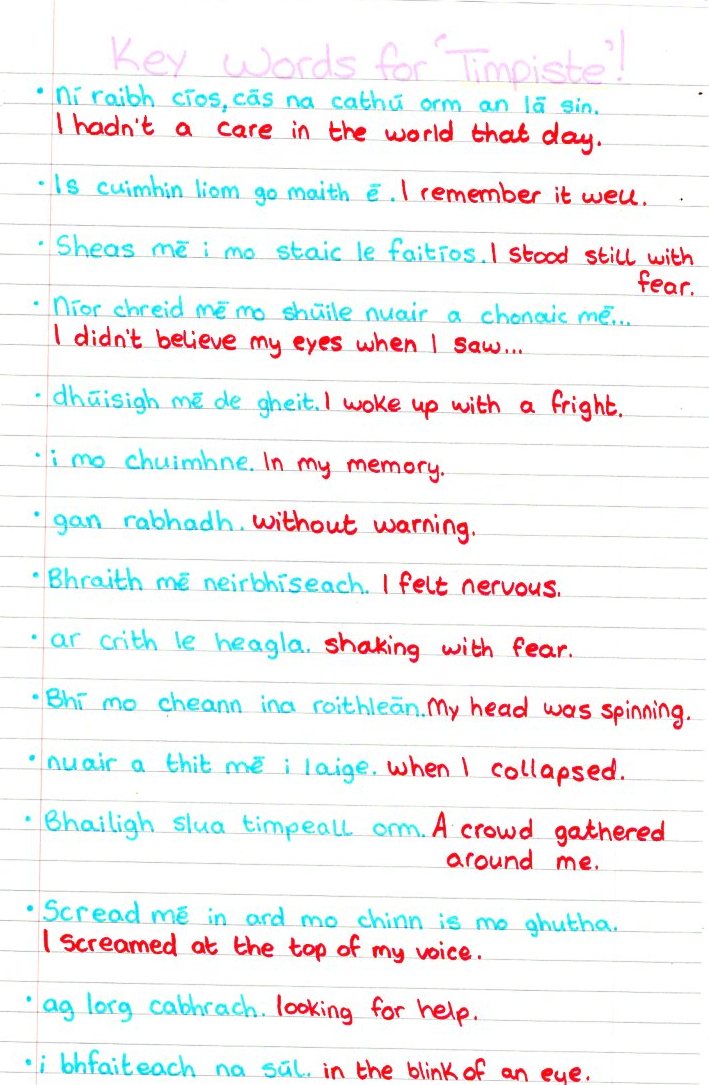 Key words for 'Timpiste'!
• Ní raibh cíos, cás na cathú orm an lá sin.
I hadn't a care in the world that day.
• Is cuimhin liom go maith é. I remember it well.
• Sheas mé i mo staic le faitíos. I stood still with
fear.
• Níor chreid mé mo shúile nuair a chonaic mé...
I didn't believe my eyes when I saw...
• dhúisigh mé de gheit. I woke up with a fright.
• i mo chuimhne. In my memory.
• gan rabhadh. without warning.
• Bhraith mé neirbhíseach. I felt nervous.
• ar crith le heagla. shaking with fear.
• Bhí mo cheann ina roithleán. My head was spinning.
• nuair a thit mé i laige. when I collapsed.
• Bhailigh slua timpeall orm. A crowd gathered
around me.
• Scread mé in ard mo chinn is mo ghutha.
I screamed at the top of my voice.
• ag lorg cabhrach. looking for help.
• i bhfaiteach na súl. in the blink of an eye.